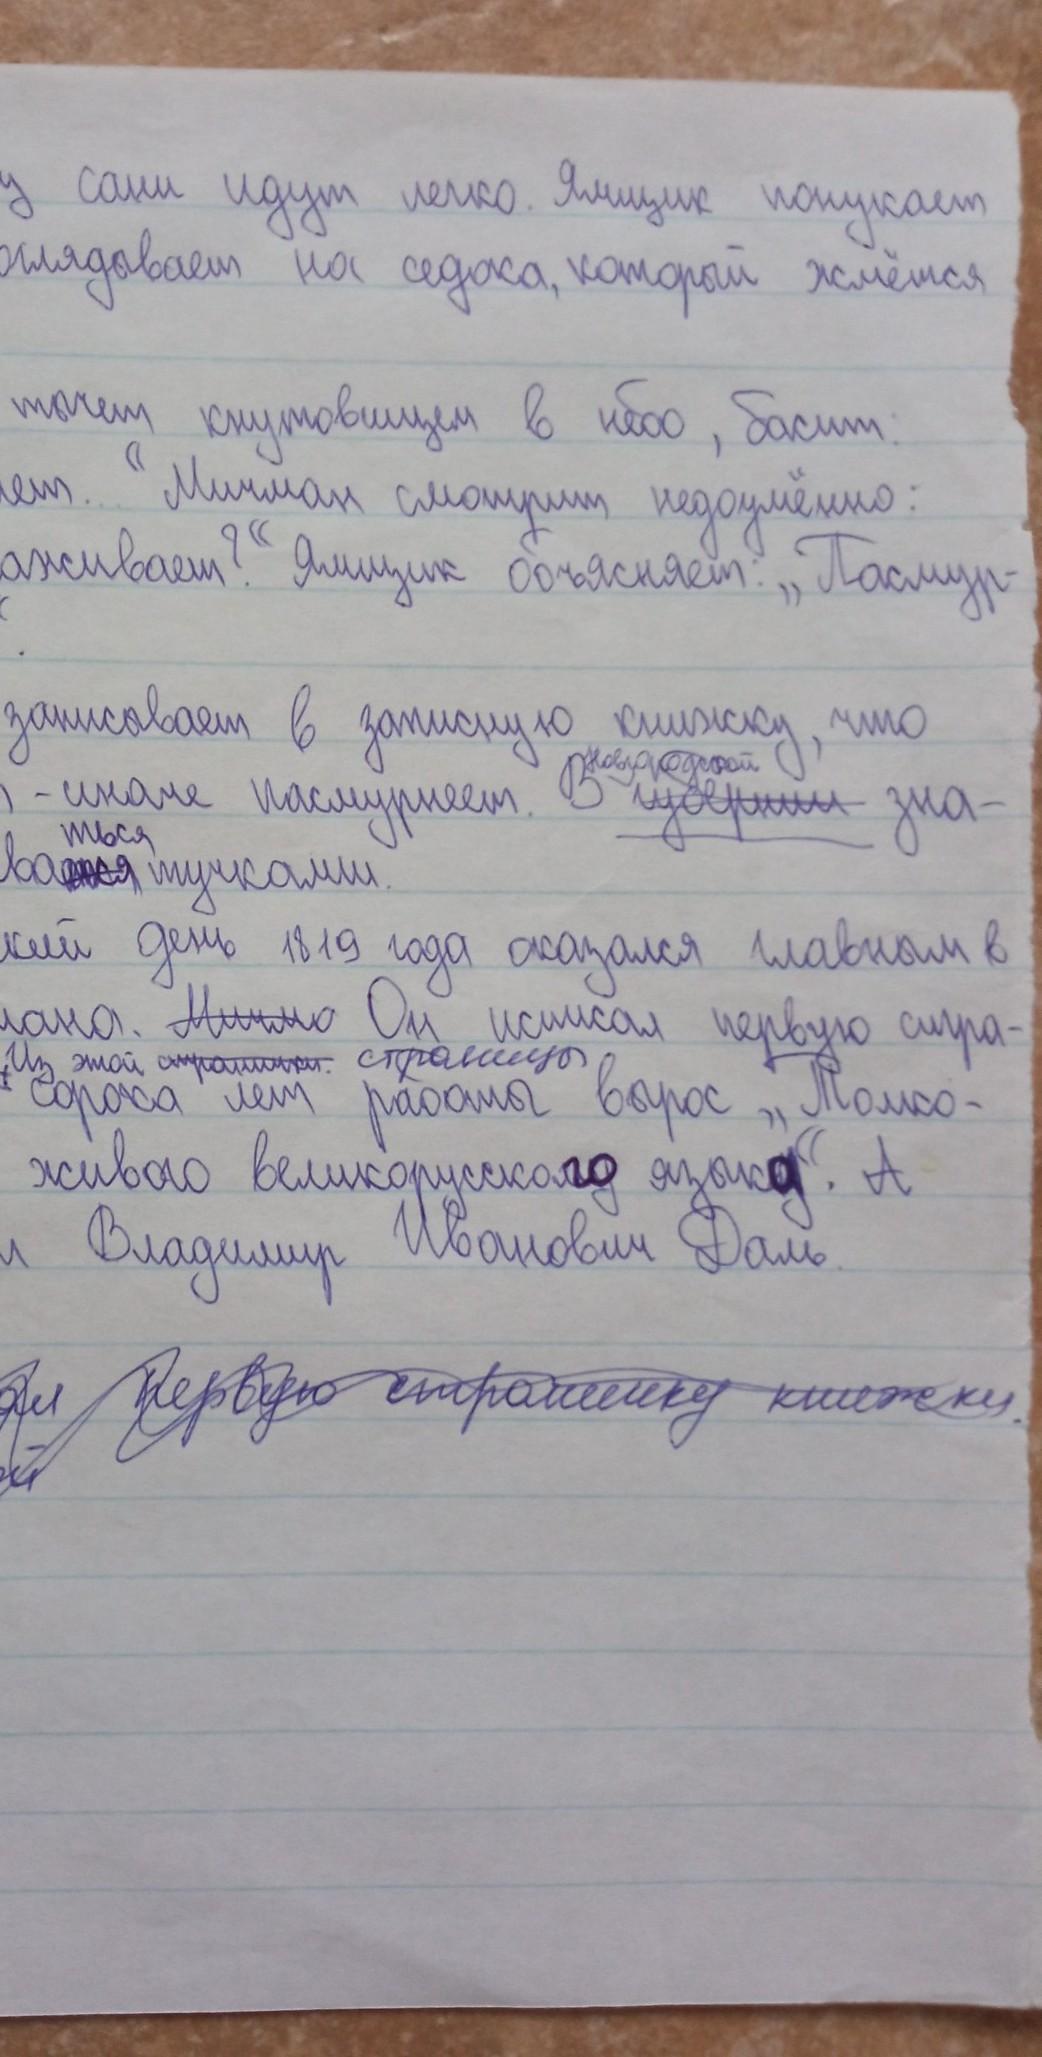 у сани идут легко. Ямщик понукает
оглядывает на седока, который жмётся
тычет кнутовищем в небо, басит:
ет... “Мичман смотрит недоумённо:
аживает?“ Ямщик объясняет: „Пасмур-
“.
записывает в записную книжку, что
- иначе пасмурнеет. В губернии зна-
Новгородской
ться
ва тучками.
кий день 1819 года оказался главным в
мана. Мичма Он исписал первую стра-
Из этой странички. страницы
сорока лет работы вырос „Толко-
живого великорусского языка“. А
л Владимир Иванович Даль.
ал первую страничку книжки.
ой